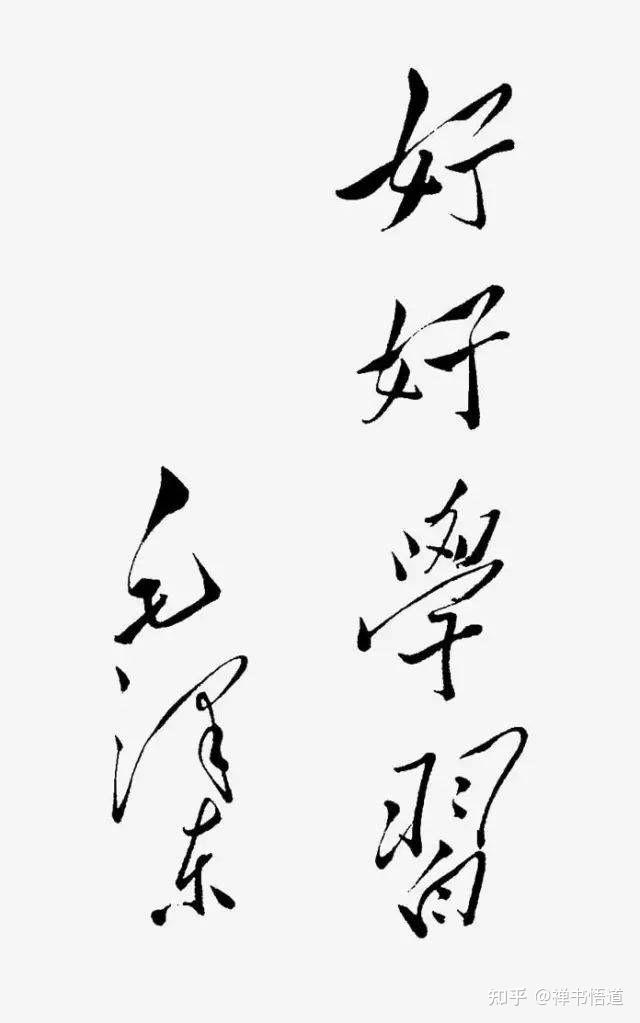 好好學習
毛泽东
知乎 @禅书悟道